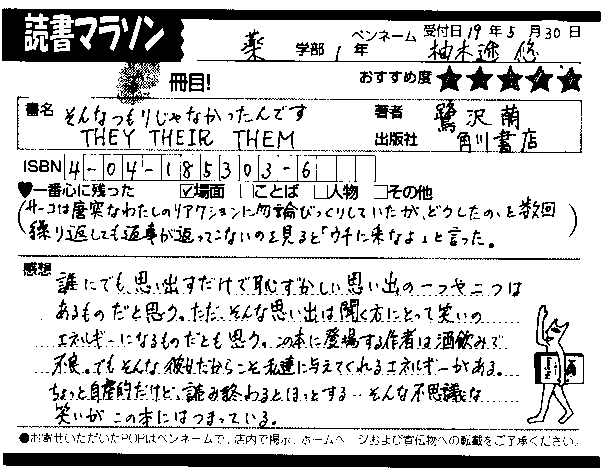 読書マラソン
受付日 19年 5月 30日
薬 学部 1年 ペンネーム 柚木迩 悠
冊目! おすすめ度 ★★★★★
書名 そんなつもりじゃなかったんです
THEY THEIR THEM
著者 鷺沢萠
出版社 角川書店
ISBN 4-04-185303-6
♥一番心に残った ☑場面 □ことば □人物 □その他
(サーコは唐突なわたしのリアクションに勿論びっくりしていたが、どうしたの、と数回
繰り返しても返事が返ってこないのを見ると「ウチに来なよ」と言った。)
感想
誰にでも、思い出すだけで恥ずかしい思い出の一つや二つは
あるものだと思う。ただ、そんな思い出は聞く方にとって笑いの
エネルギーになるものだとも思う。この本に登場する作者は酒飲みで
不良。でもそんな彼女だからこそ私達に与えてくれるエネルギーがある。
ちょっと自虐的だけど、読み終わるとほっとする…そんな不思議な
笑いがこの本にはつまっている。
●お寄せいただいたPOPはペンネームで、店内で掲示、ホームページおよび宣伝物への転載をご了承ください。